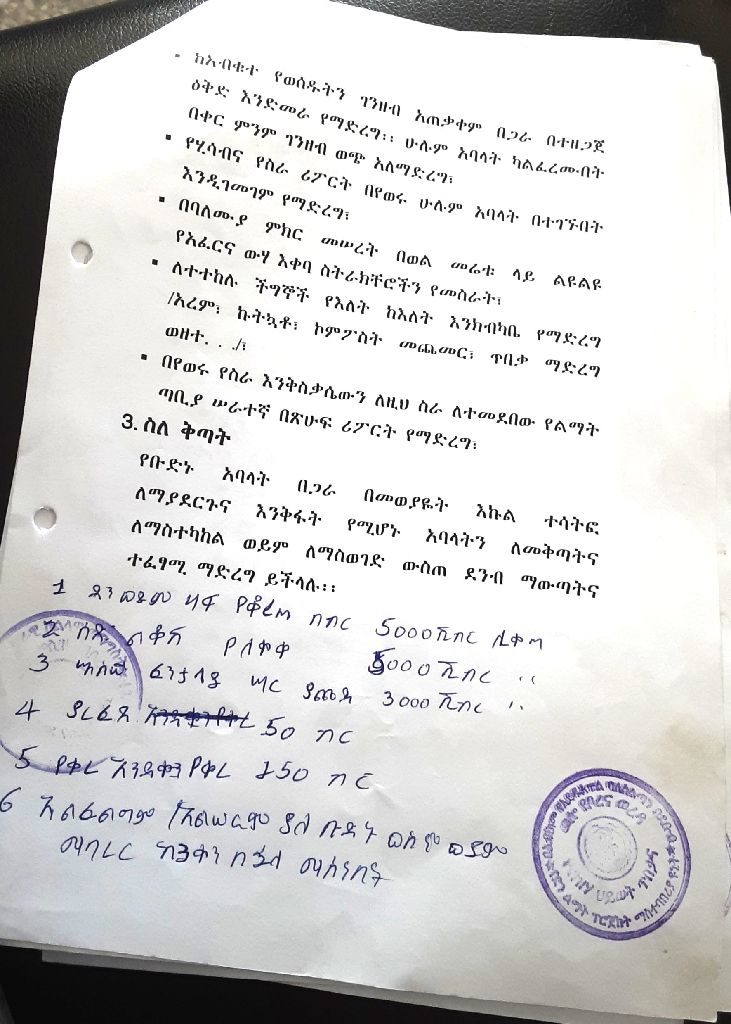 ▪ ከአብቁተ የወሰዱትን ገንዘብ አጠቃቀም በጋራ በተዘጋጀ
ዕቅድ እንድመራ የማድረግ፡፡ ሁሉም አባላት ካልፈረሙበት
በቀር ምንም ገንዘብ ወጭ አለማድረግ፣
▪ የሂሳብና የስራ ሪፖርት በየወሩ ሁሉም አባላት በተገኙበት
እንዲገመገም የማድረግ፣
▪ በባለሙያ ምክር መሠረት በወል መሬቱ ላይ ልዩልዩ
የአፈርና ውሃ እቀባ ስትራክቸሮችን የመስራት፣
▪ ለተተከሉ ችግኞች የእለት ከእለት እንክብካቤ የማድረግ
/አረም፣ ኩትኳቶ፣ ኮምፖስት መጨመር፣ ጥበቃ ማድረግ
ወዘተ. . ./፣
▪ በየወሩ የስራ እንቅስቃሴውን ለዚህ ስራ ለተመደበው የልማት
ጣቢያ ሠራተኛ በጽሁፍ ሪፖርት የማድረግ፣
3. ስለ ቅጣት
የቡድኑ አባላት በጋራ በመወያዬት እኩል ተሳትፎ
ለማያደርጉና እንቅፋት የሚሆኑ አባላትን ለመቅጣትና
ለማስተካከል ወይም ለማስወገድ ውስጠ ደንብ ማውጣትና
ተፈፃሚ ማድረግ ይችላሉ፡፡
1 ዛፍ የቆረጠ በብር 5000 ሺ ብር
2 የለቀቀ 5000 ሺ ብር ,,
3 ሣር ያጨደ 3000 ሺ ብር ,,
4 ያረፈደ 50 ብር
5 የቀረ አንድ ቀን የቀረ 150 ብር
6 ያለ
ማባረር